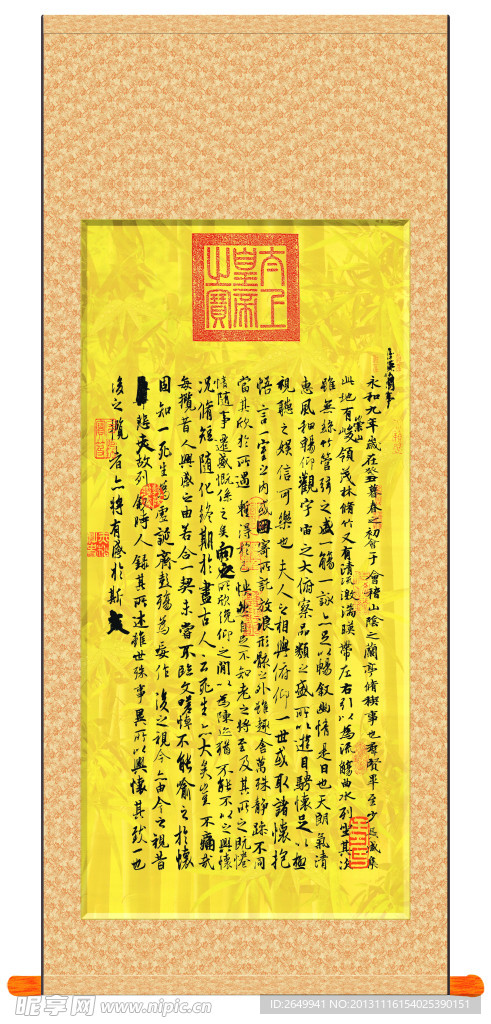 太上
皇帝
之寶
永和九年歲在癸丑暮春之初會于會稽山陰之蘭亭脩稧事也羣賢畢至少長咸集
此地有崇山峻領茂林脩竹又有清流激湍暎帶左右引以為流觴曲水列坐其次
雖無絲竹管弦之盛一觴一詠亦足以暢敘幽情是日也天朗氣清
惠風和暢仰觀宇宙之大俯察品類之盛所以遊目騁懷足以極
視聽之娛信可樂也夫人之相與俯仰一世或取諸懷抱
悟言一室之內或因寄所託放浪形骸之外雖趣舍萬殊靜躁不同
當其欣於所遇暫得於己怏然自足不知老之將至及其所之既惓
情隨事遷感慨係之矣向之所欣俛仰之間以為陳迹猶不能不以之興懷
況脩短隨化終期於盡古人云死生亦大矣豈不痛哉
每攬昔人興感之由若合一契未嘗不臨文嗟悼不能喻之於懷
固知一死生為虛誕齊彭殤為妄作後之視今亦由今之視昔
悲夫故列敘時人錄其所述雖世殊事異所以興懷其致一也
後之攬者亦將有感於斯文
昵享网 www.nipic.cn
ID:2649941 NO:20131116154025390151